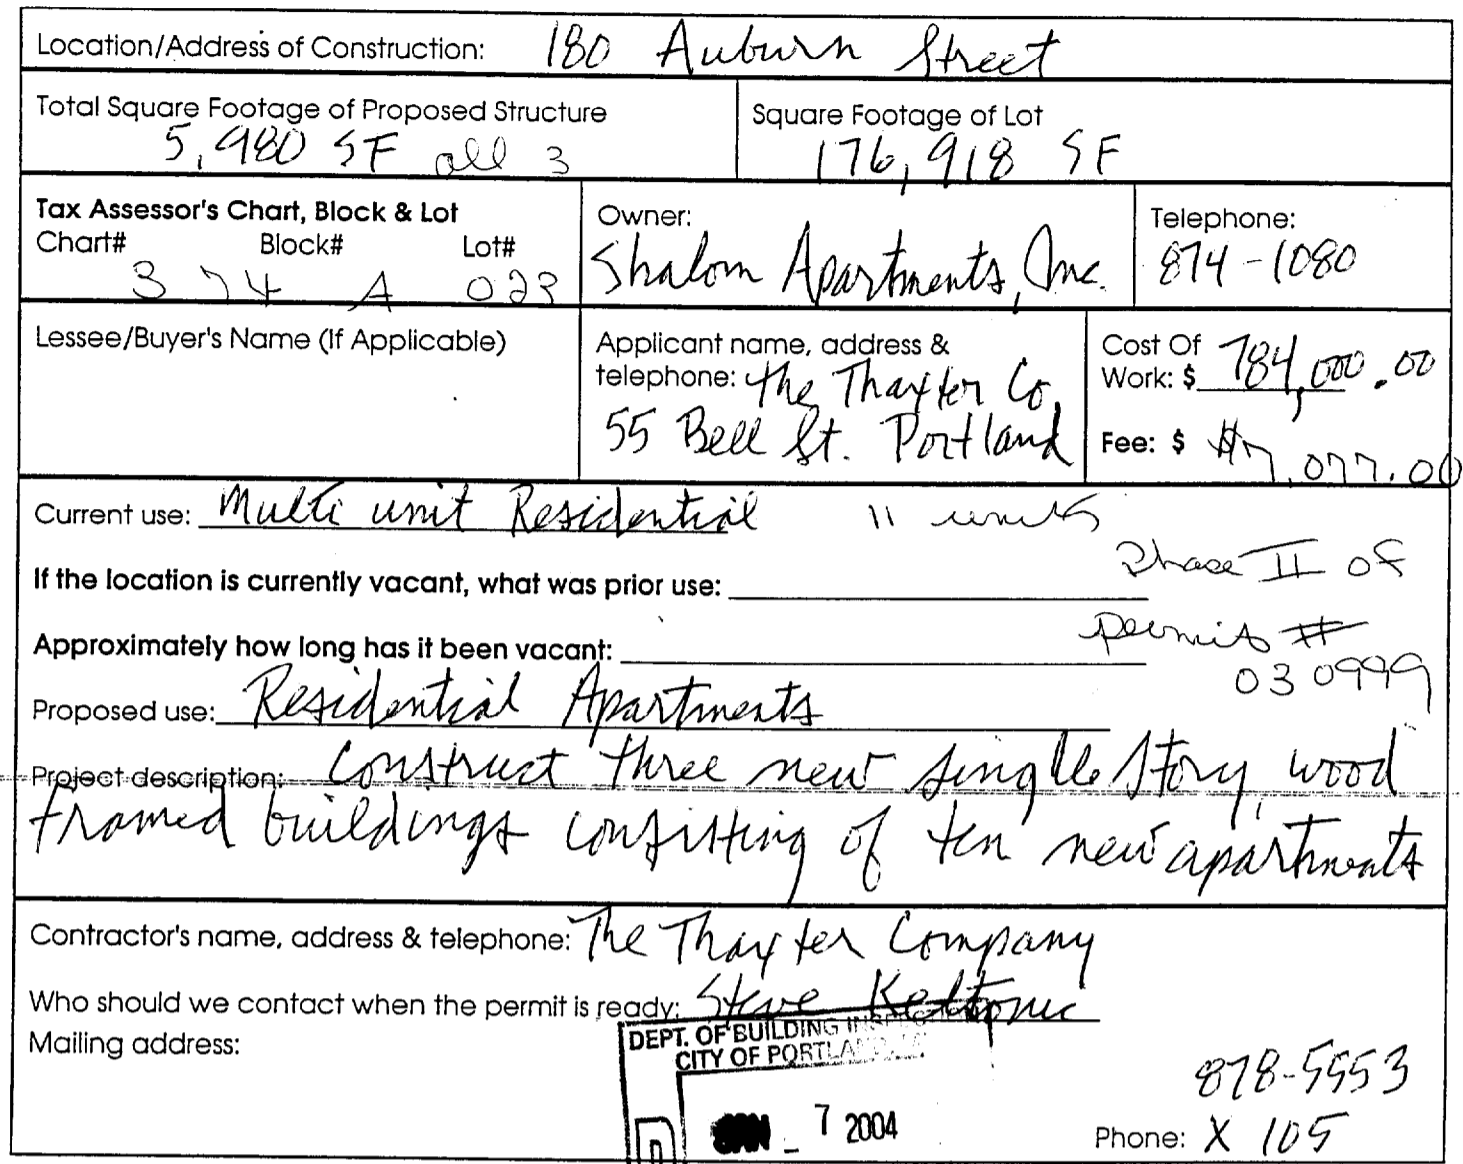 Location/Address of Construction: 180 Auburn Street
Total Square Footage of Proposed Structure
5,980 SF all 3
Square Footage of Lot
176,918 SF
Tax Assessor's Chart, Block & Lot
Chart# Block# Lot#
374 A 023
Owner:
Shalom Apartments, Inc.
Telephone:
874-1080
Lessee/Buyer's Name (If Applicable)
Applicant name, address &
telephone: the Thaxter Co.
55 Bell St. Portland
Cost Of
Work: $ 784,000.00
Fee: $ $7,077.00
Current use: Multi unit Residential 11 units
Phase II of
If the location is currently vacant, what was prior use:
permit #
Approximately how long has it been vacant:
030999
Proposed use: Residential Apartments
Project description: Construct three new single story, wood
framed buildings consisting of ten new apartments
Contractor's name, address & telephone: The Thaxter Company
Who should we contact when the permit is ready: Steve
Mailing address:
DEPT. OF BUILDING
CITY OF PORTLAND
7 2004
878-5553
Phone: X 105